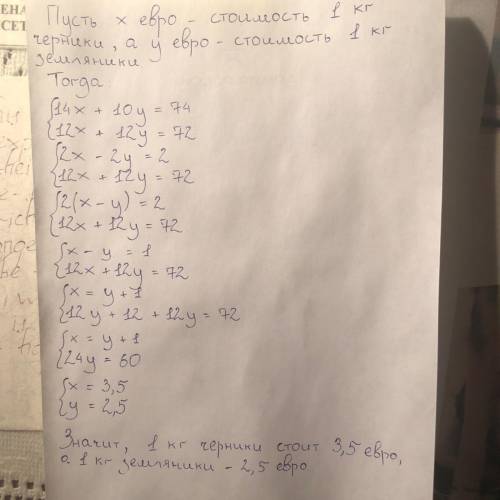 Пусть x евро - стоимость 1 кг
черники, а y евро - стоимость 1 кг
земляники
Тогда
14x + 10y = 74
12x + 12y = 72
2x - 2y = 2
12x + 12y = 72
2(x - y) = 2
12x + 12y = 72
x - y = 1
12x + 12y = 72
x = y + 1
12y + 12 + 12y = 72
x = y + 1
24y = 60
x = 3,5
y = 2,5
Значит, 1 кг черники стоит 3,5 евро,
а 1 кг земляники - 2,5 евро